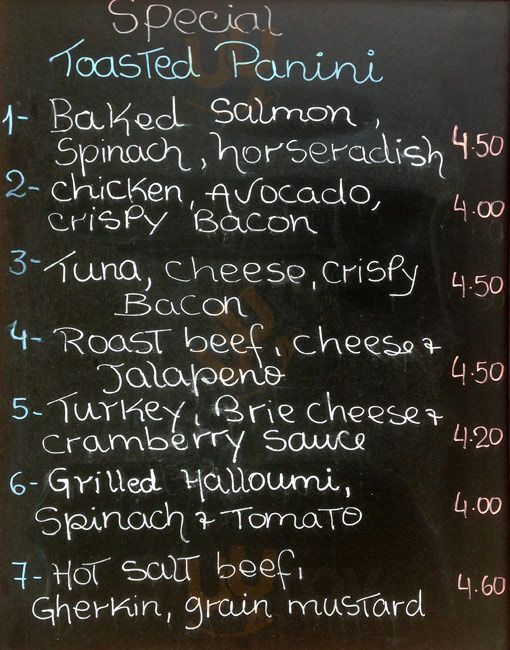 Special
Toasted Panini
1- Baked Salmon,
Spinach, horseradish 4.50
2- chicken, Avocado,
crispy Bacon 4.00
3- Tuna, cheese, crispy
Bacon 4.50
4- Roast beef, cheese &
Jalapeno 4.50
5- Turkey, Brie cheese &
cramberry sauce 4.20
6- Grilled Halloumi,
Spinach & Tomato 4.00
7- Hot salt beef,
Gherkin, grain mustard 4.60